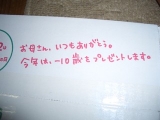 お母さん、いつもありがとう。
今年は、-10歳をプレゼントします。